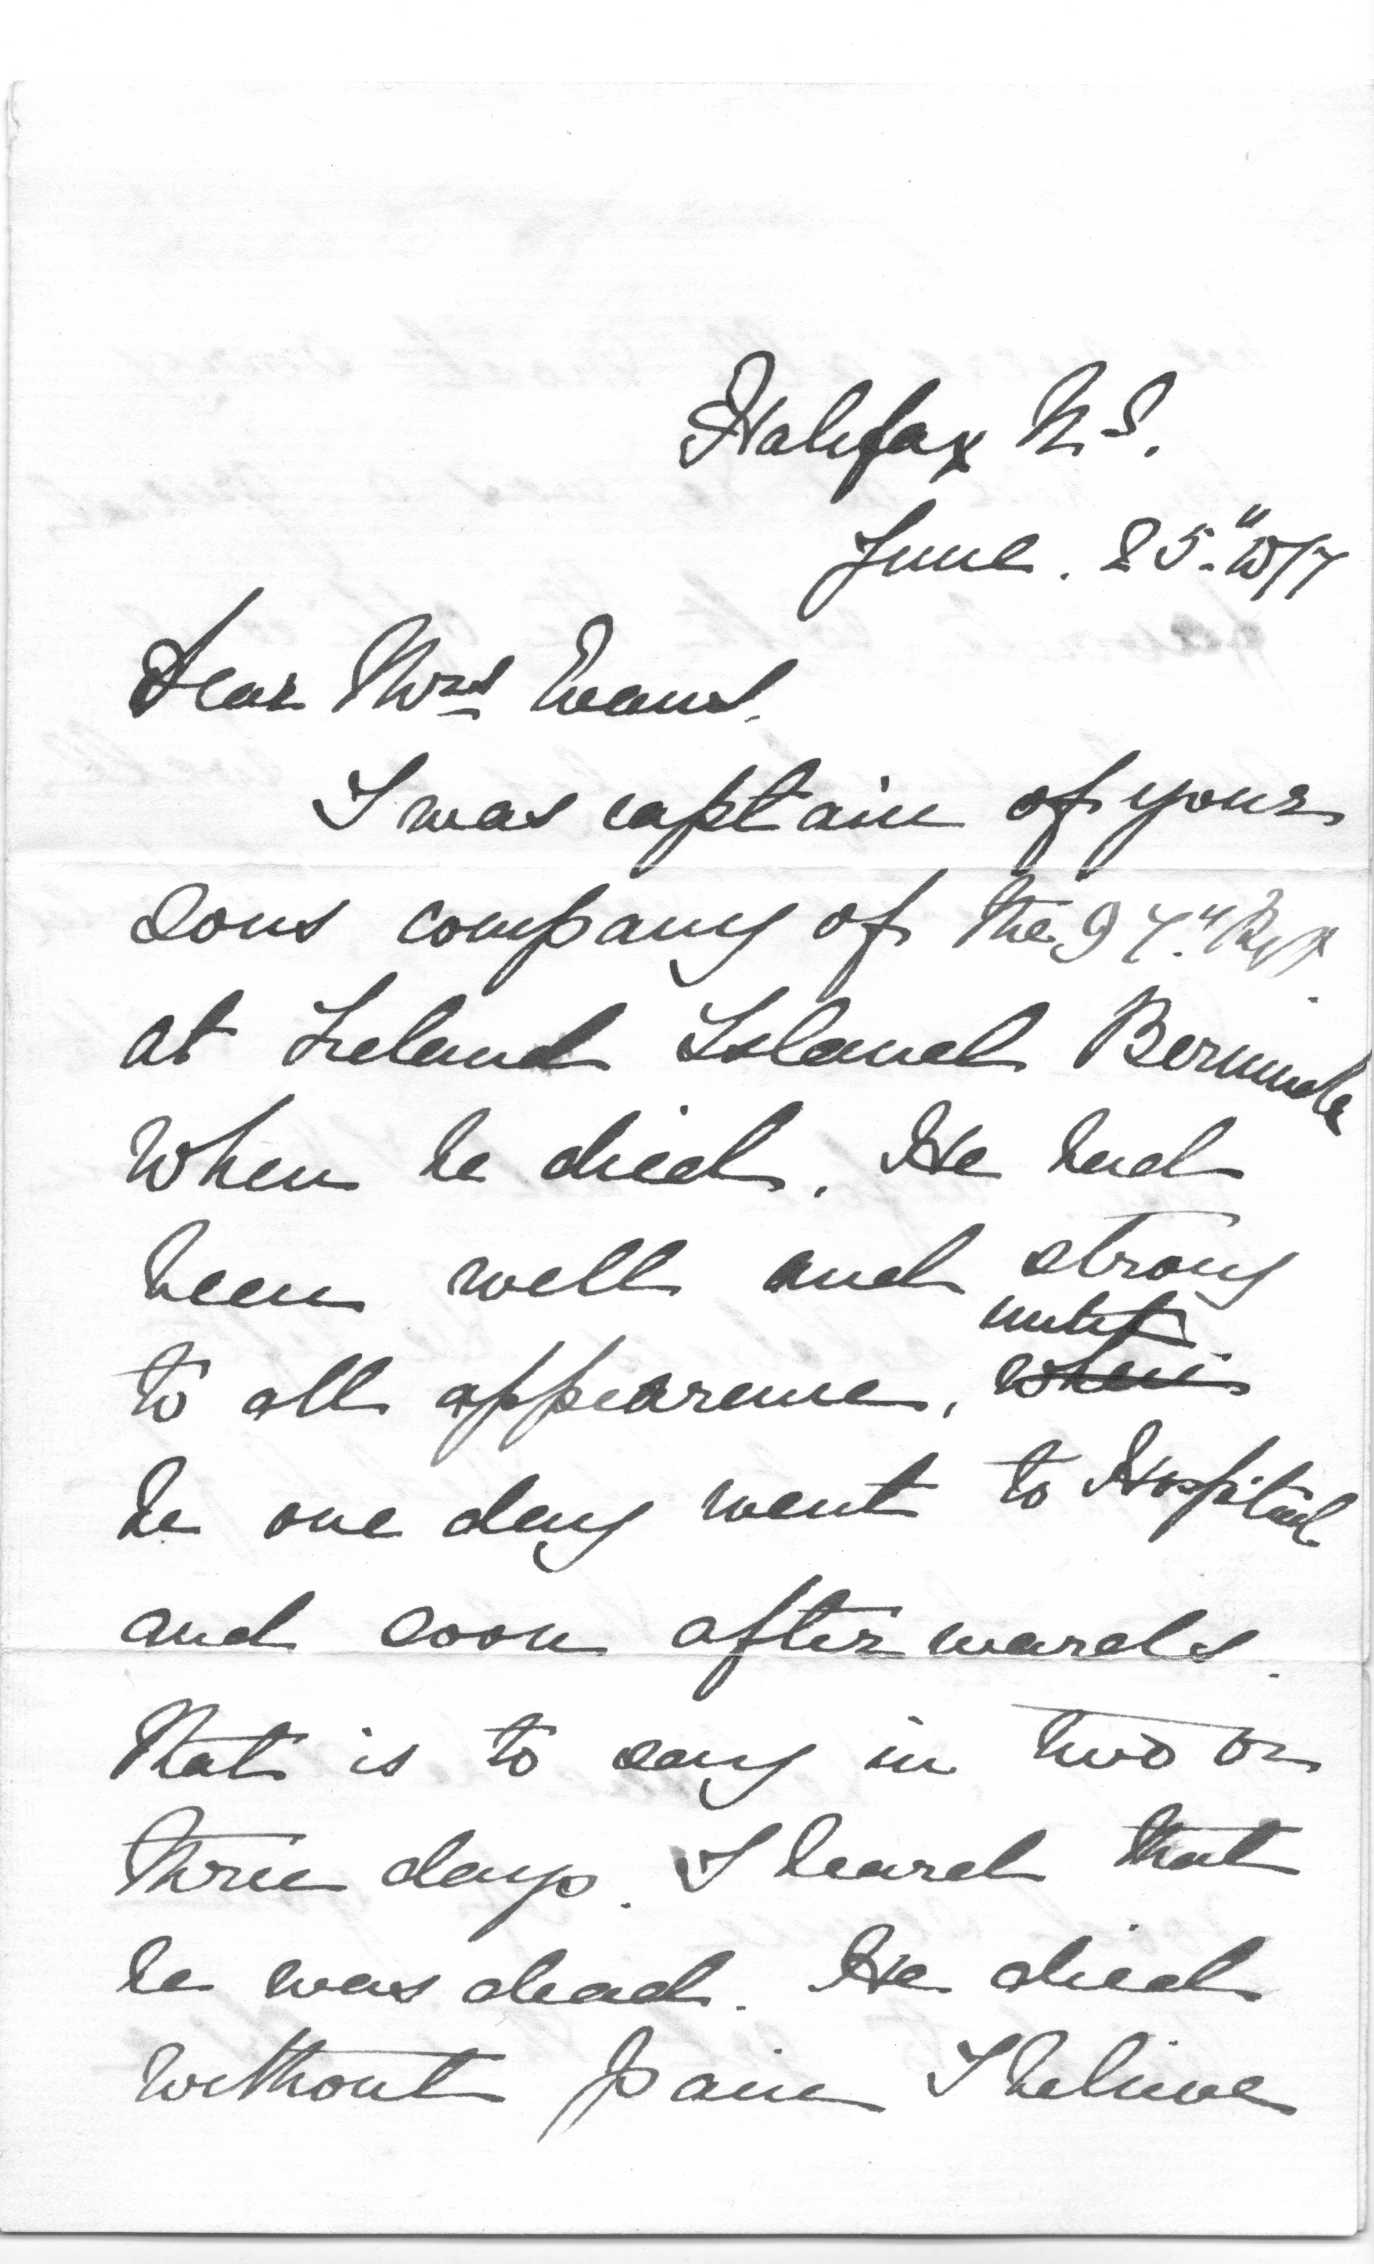 Halifax N.S.
June. 25." 1877
Dear Mrs Evans.
I was captain of your
sons company of the 97." Rgt.
at Ireland Island Bermuda
when he died. He had
been well and strong
until
to all appearance, when
he one day went to Hospital
and soon afterwards.
that is to say in two or
three days. I heard that
he was dead. He died
without pain I believe